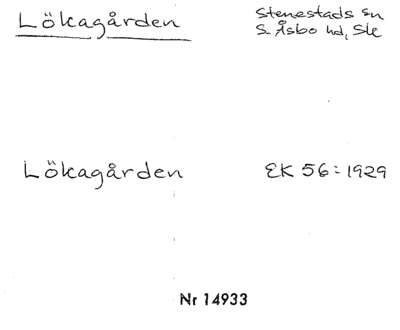 Lökagården
Stenestads sn
S. Åsbo hd, Ske
Lökagården
EK 56:1929
Nr 14933